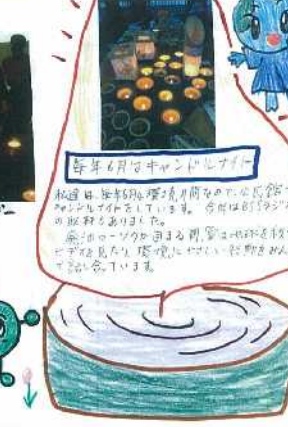 毎年6月はキャンドルナイト
私達は、毎年6月は環境月間なので、公民館で
キャンドルナイトをしています。今年はBSSラジオ
の取材もありました。
廃油ローソクが固まる間、実は地球を救う
ビデオを見たり、環境にやさしい行動をみん
で話し合っています。